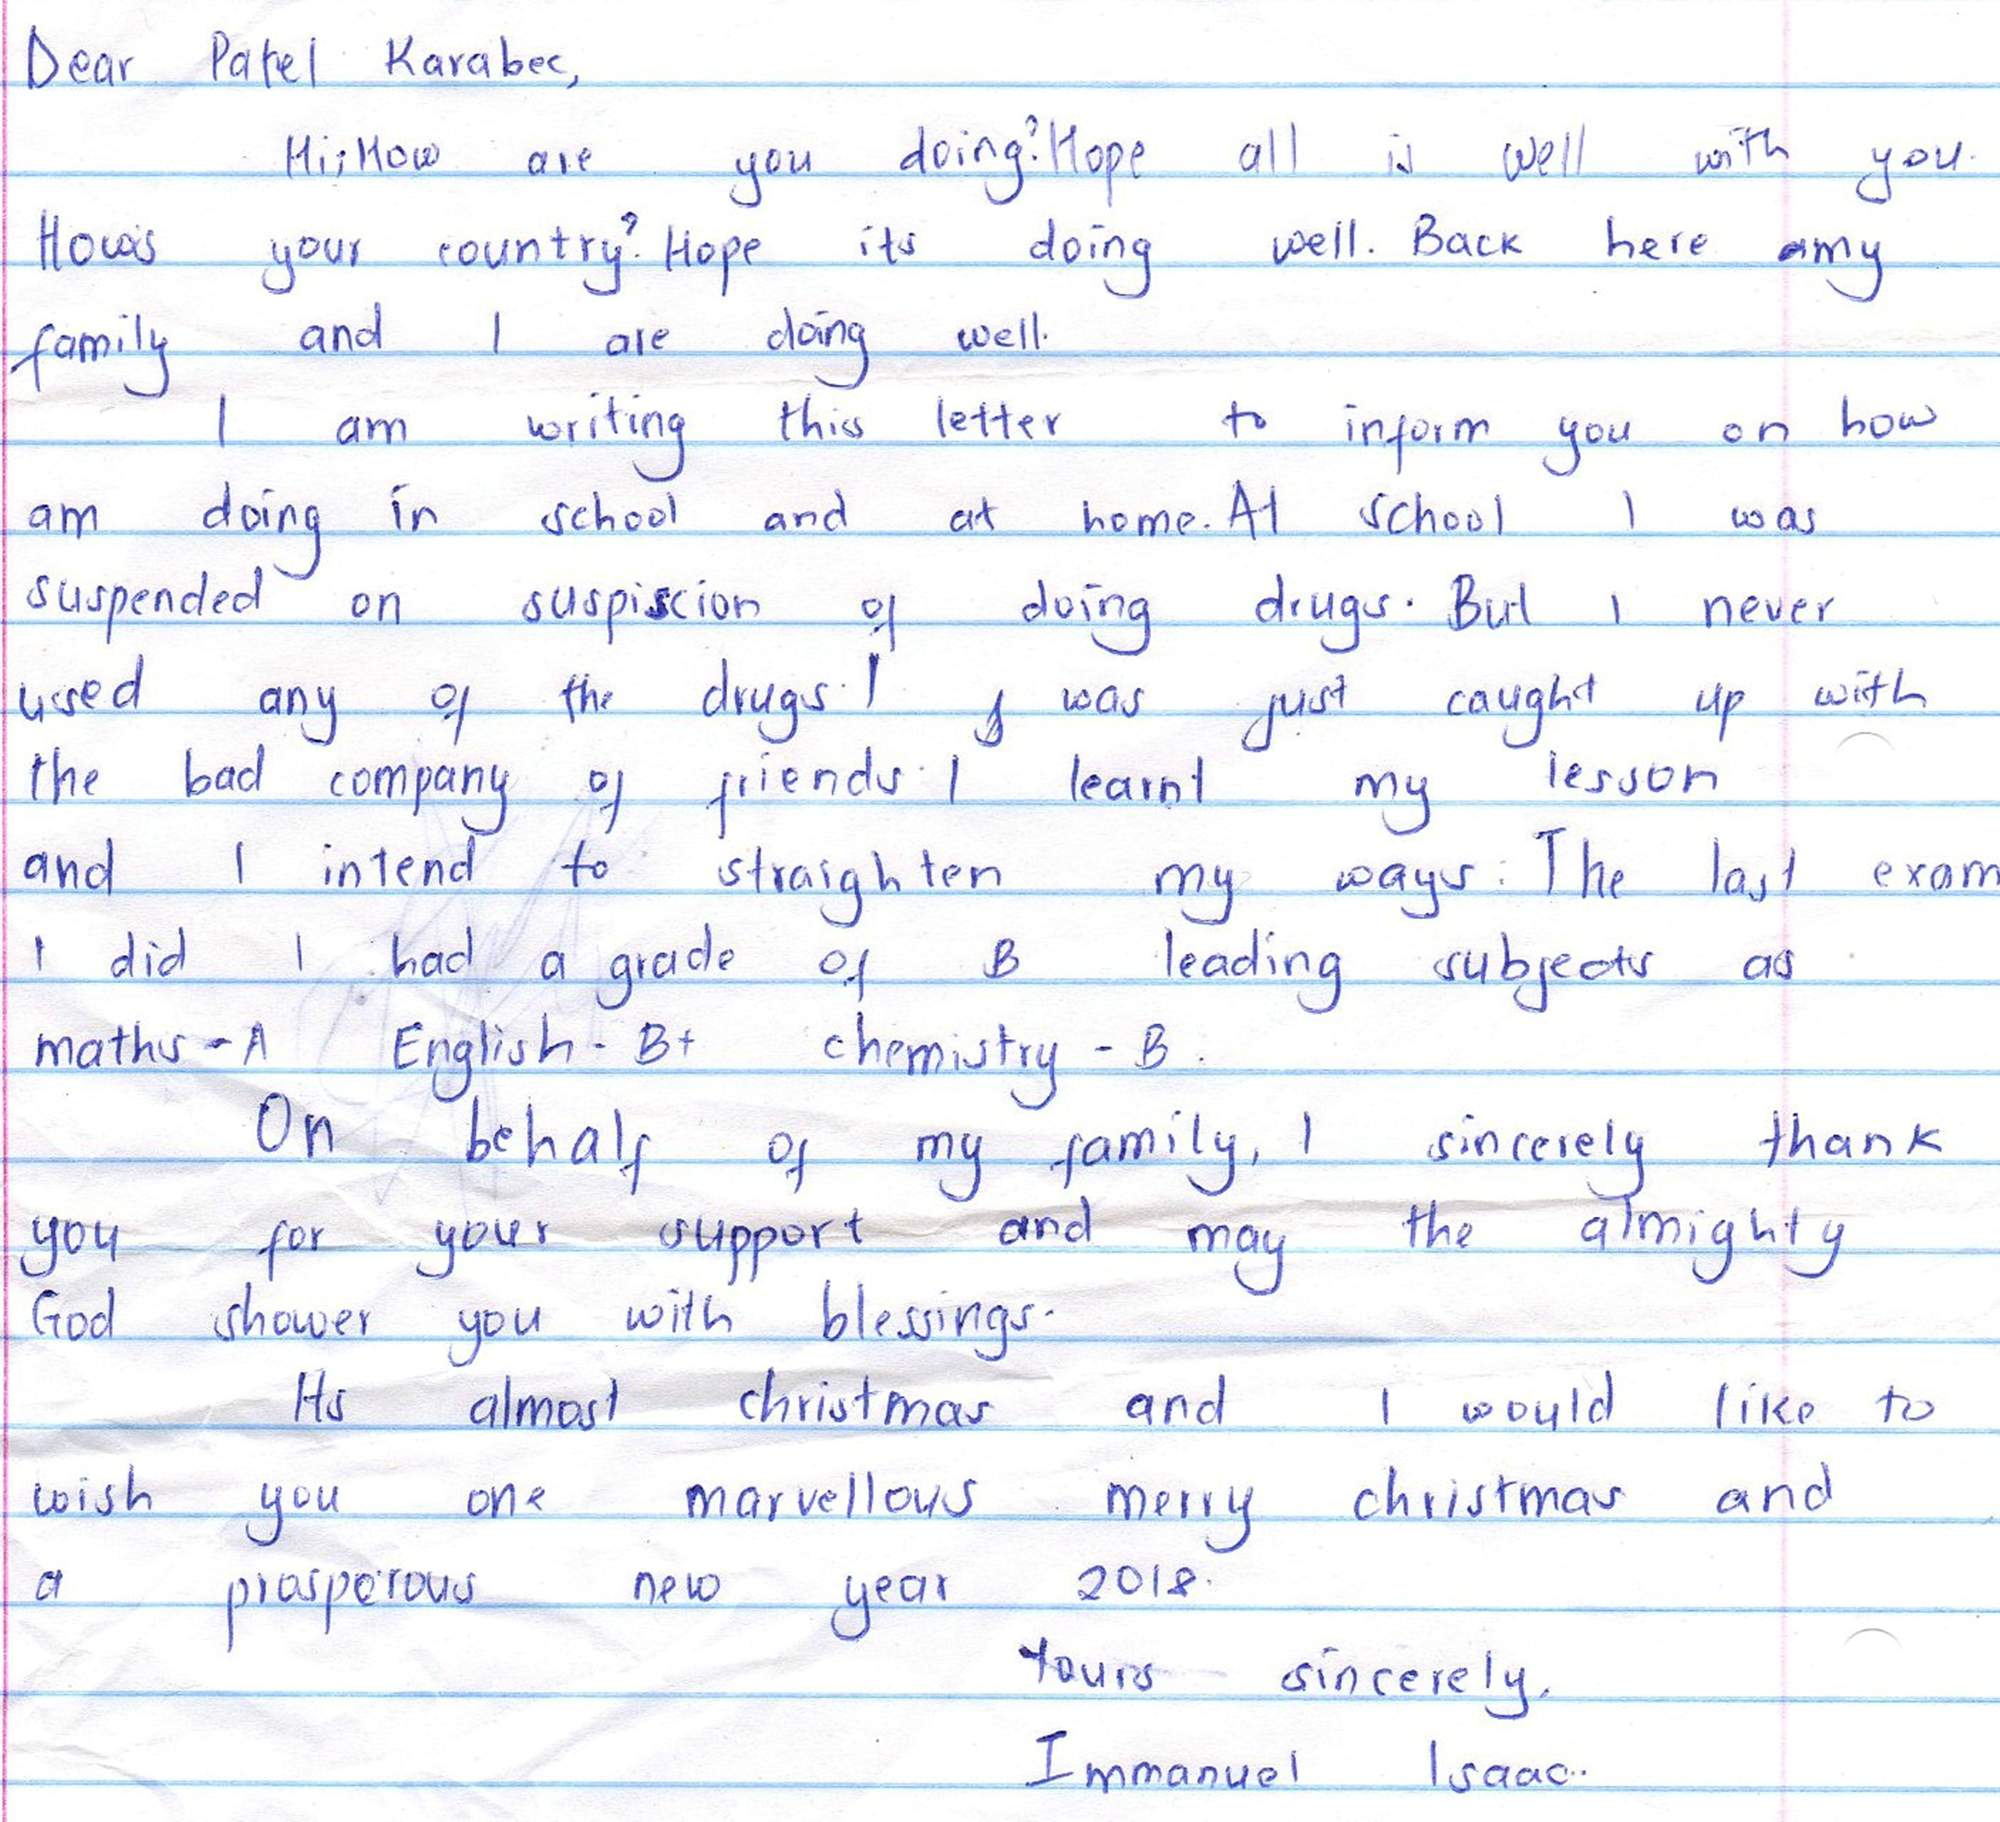 Dear Patel Karabec,
Hi; How are you doing? Hope all is well with you.
How's your country? Hope its doing well. Back here my
family and I are doing well.
I am writing this letter to inform you on how
am doing in school and at home. At school I was
suspended on suspiscion of doing drugs. But I never
used any of the drugs. I was just caught up with
the bad company of friends. I learnt my lesson
and I intend to straighten my ways. The last exam
I did I had a grade of B leading subjects as
maths - A English - B+ chemistry - B.
On behalf of my family, I sincerely thank
you for your support and may the almighty
God shower you with blessings.
Its almost christmas and I would like to
wish you one marvellous merry christmas and
a prosperous new year 2018.
Yours sincerely,
Immanuel Isaac.